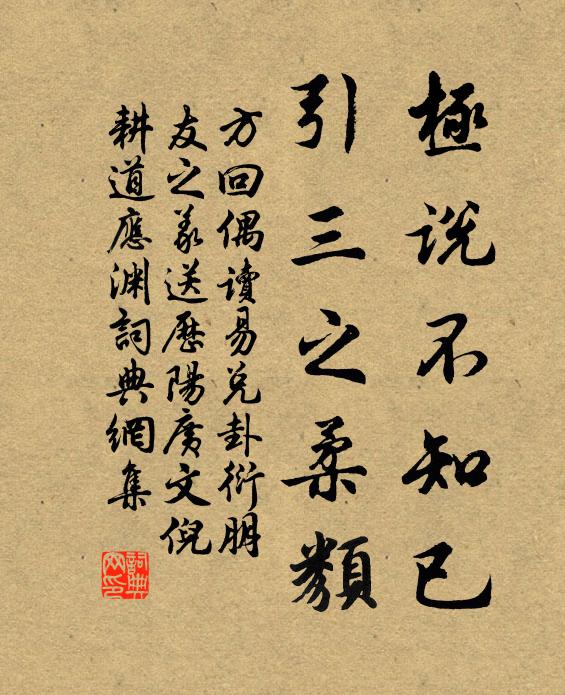 極說不知已
引三之柔類
方回偶讀易兌卦衍朋
友之義送歷陽廣文倪
耕道應淵詞典網集
詞典
网印